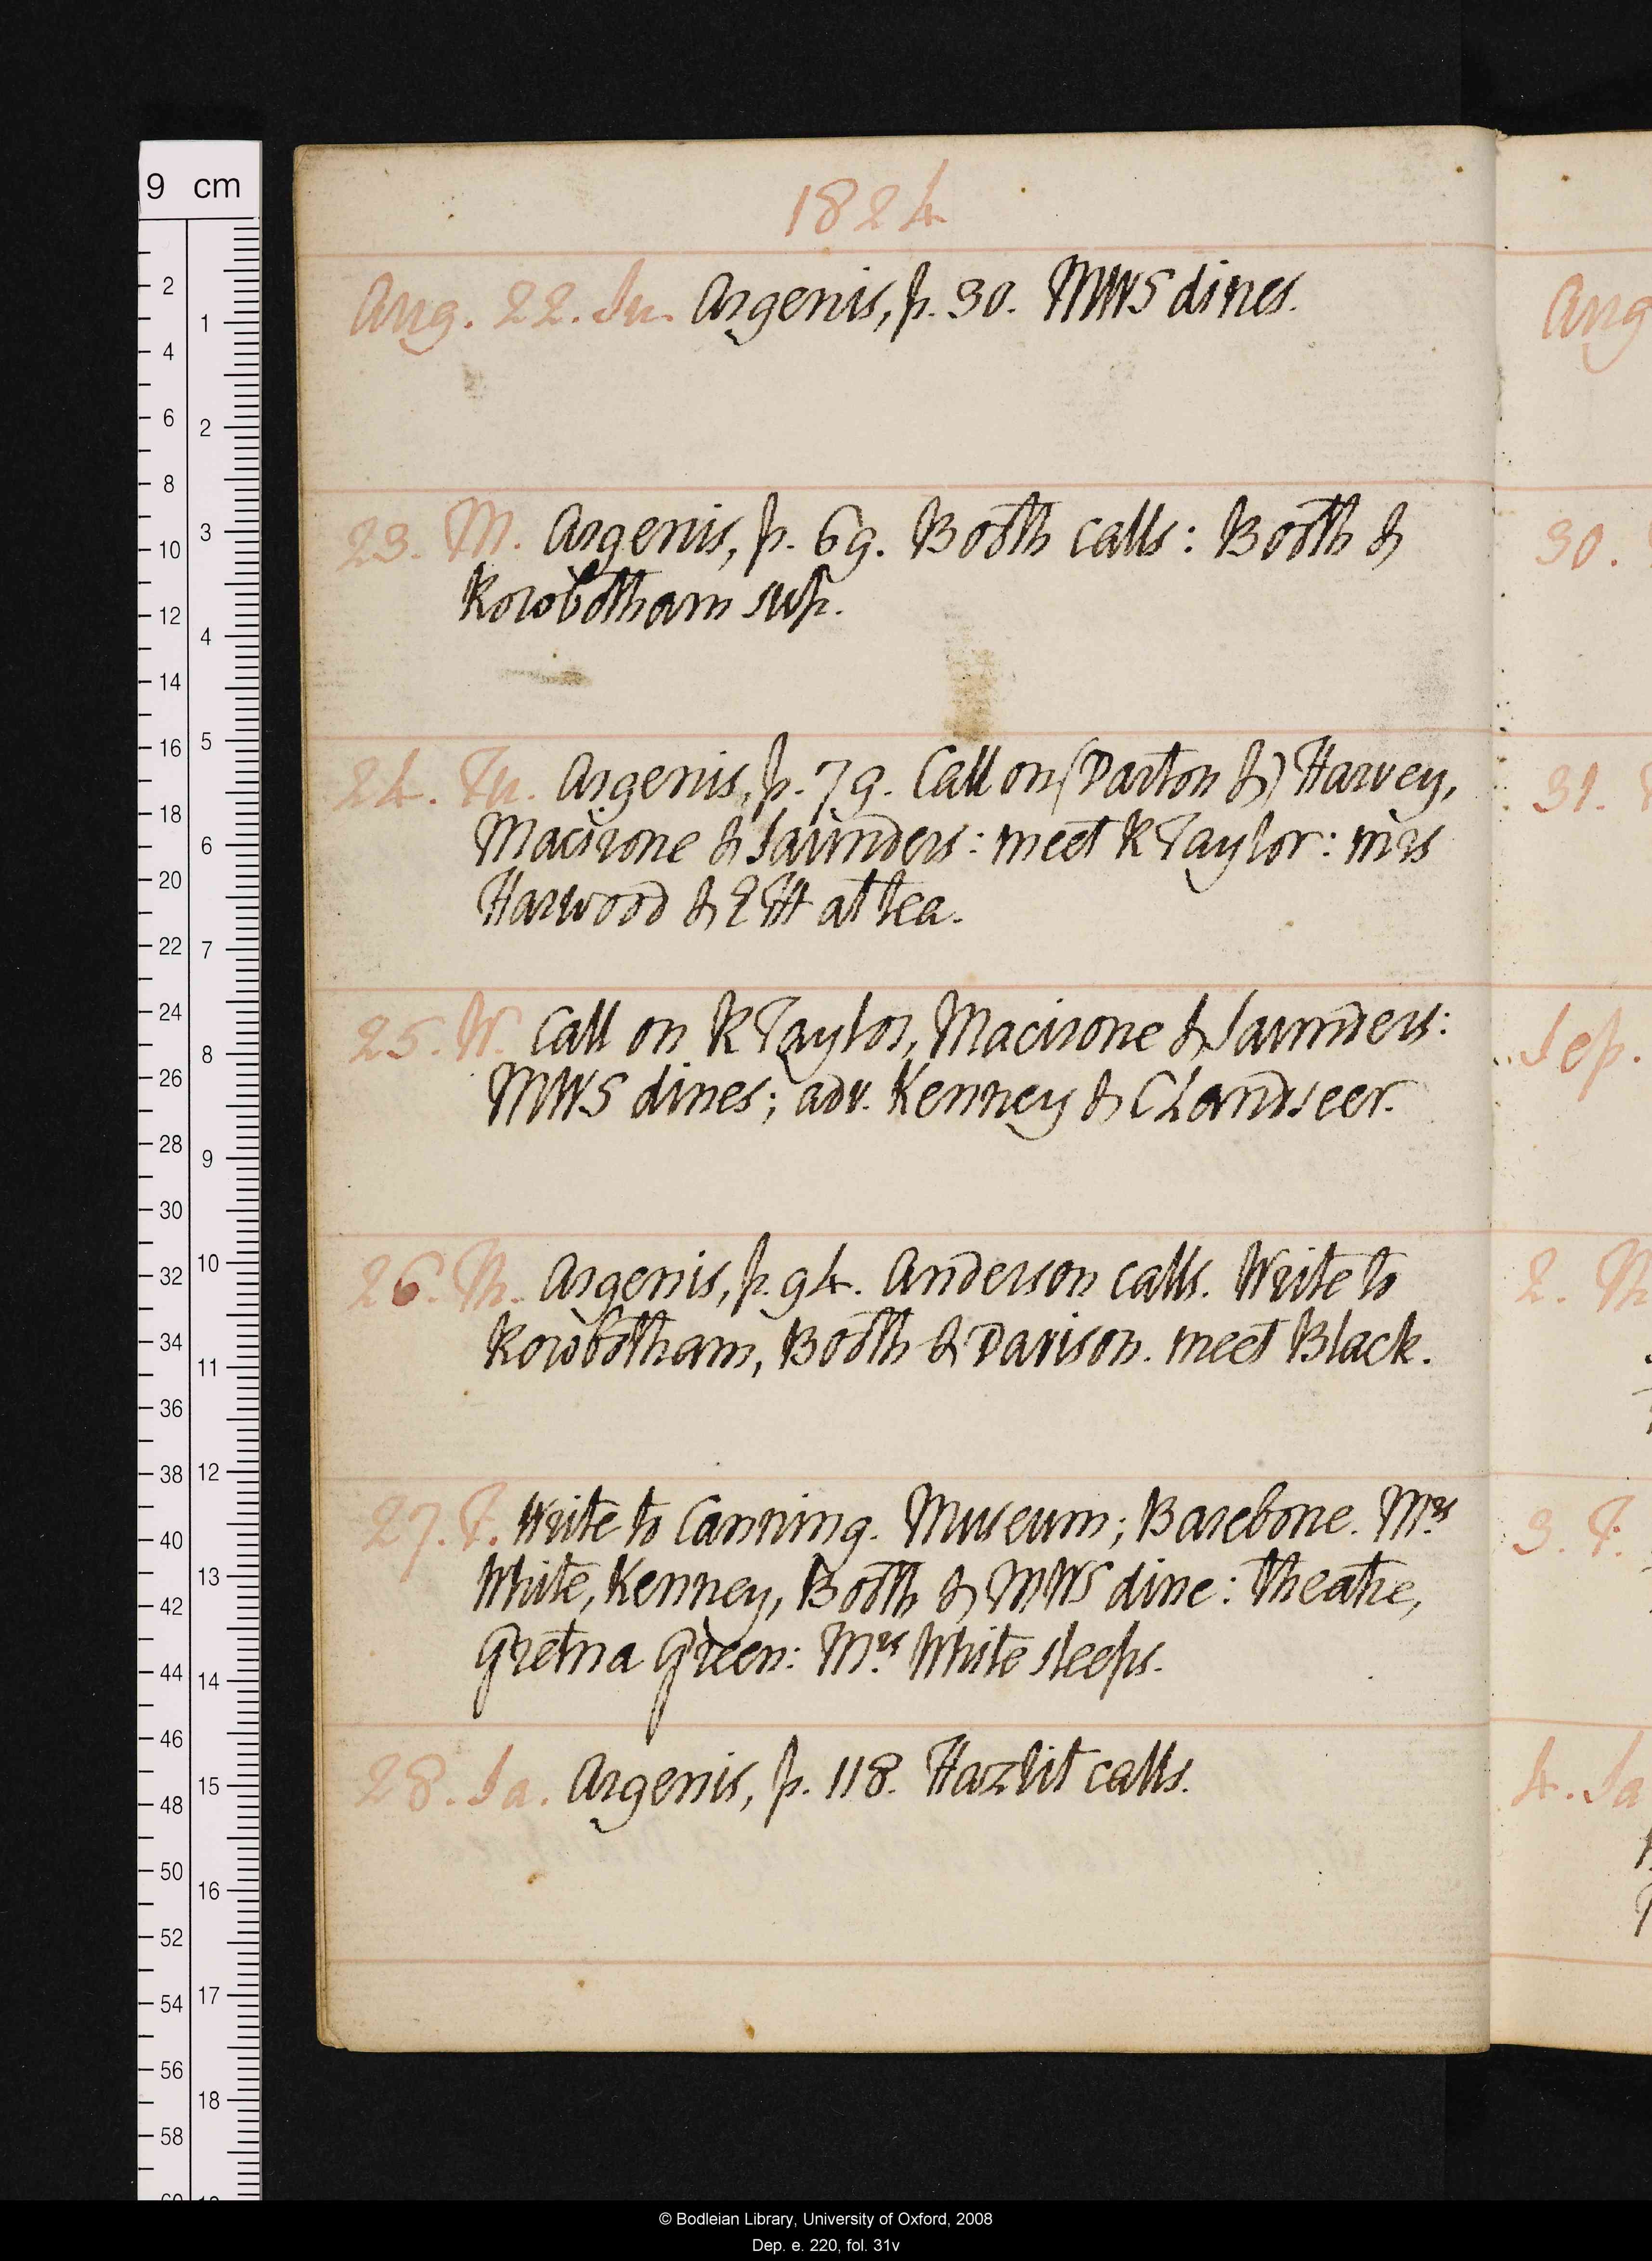 1824
Aug. 22. Su. Argenis, p. 30. MWS dines.
23. M. Argenis, p. 69. Booth calls: Booth &
Rowbotham sup.
24. Tu. Argenis, p. 79. Call on (Darton &) Harvey,
Macirone & Saunders: meet R Taylor: mrs
Harwood & E H at tea.
25. W. Call on R Taylor, Macirone & Saunders:
MWS dines; adv. Kenney & C Landseer.
26. Th. Argenis, p. 94. Anderson calls. Write to
Rowbotham, Booth & Davison. meet Black.
27. F. Write to Canning. Museum; Barebone. Mrs
White, Kenney, Booth & MWS dine: theatre,
Gretna Green: Mrs White sleeps.
28. Sa. Argenis, p. 118. Hazlit calls.
Aug
30.
31.
Sep.
2. Th
3. F.
4. Sa
9 cm
2
4
6
8
10
12
14
16
18
20
22
24
26
28
30
32
34
36
38
40
42
44
46
48
50
52
54
56
58
1
2
3
4
5
6
7
8
9
10
11
12
13
14
15
16
17
18
© Bodleian Library, University of Oxford, 2008
Dep. e. 220, fol. 31v